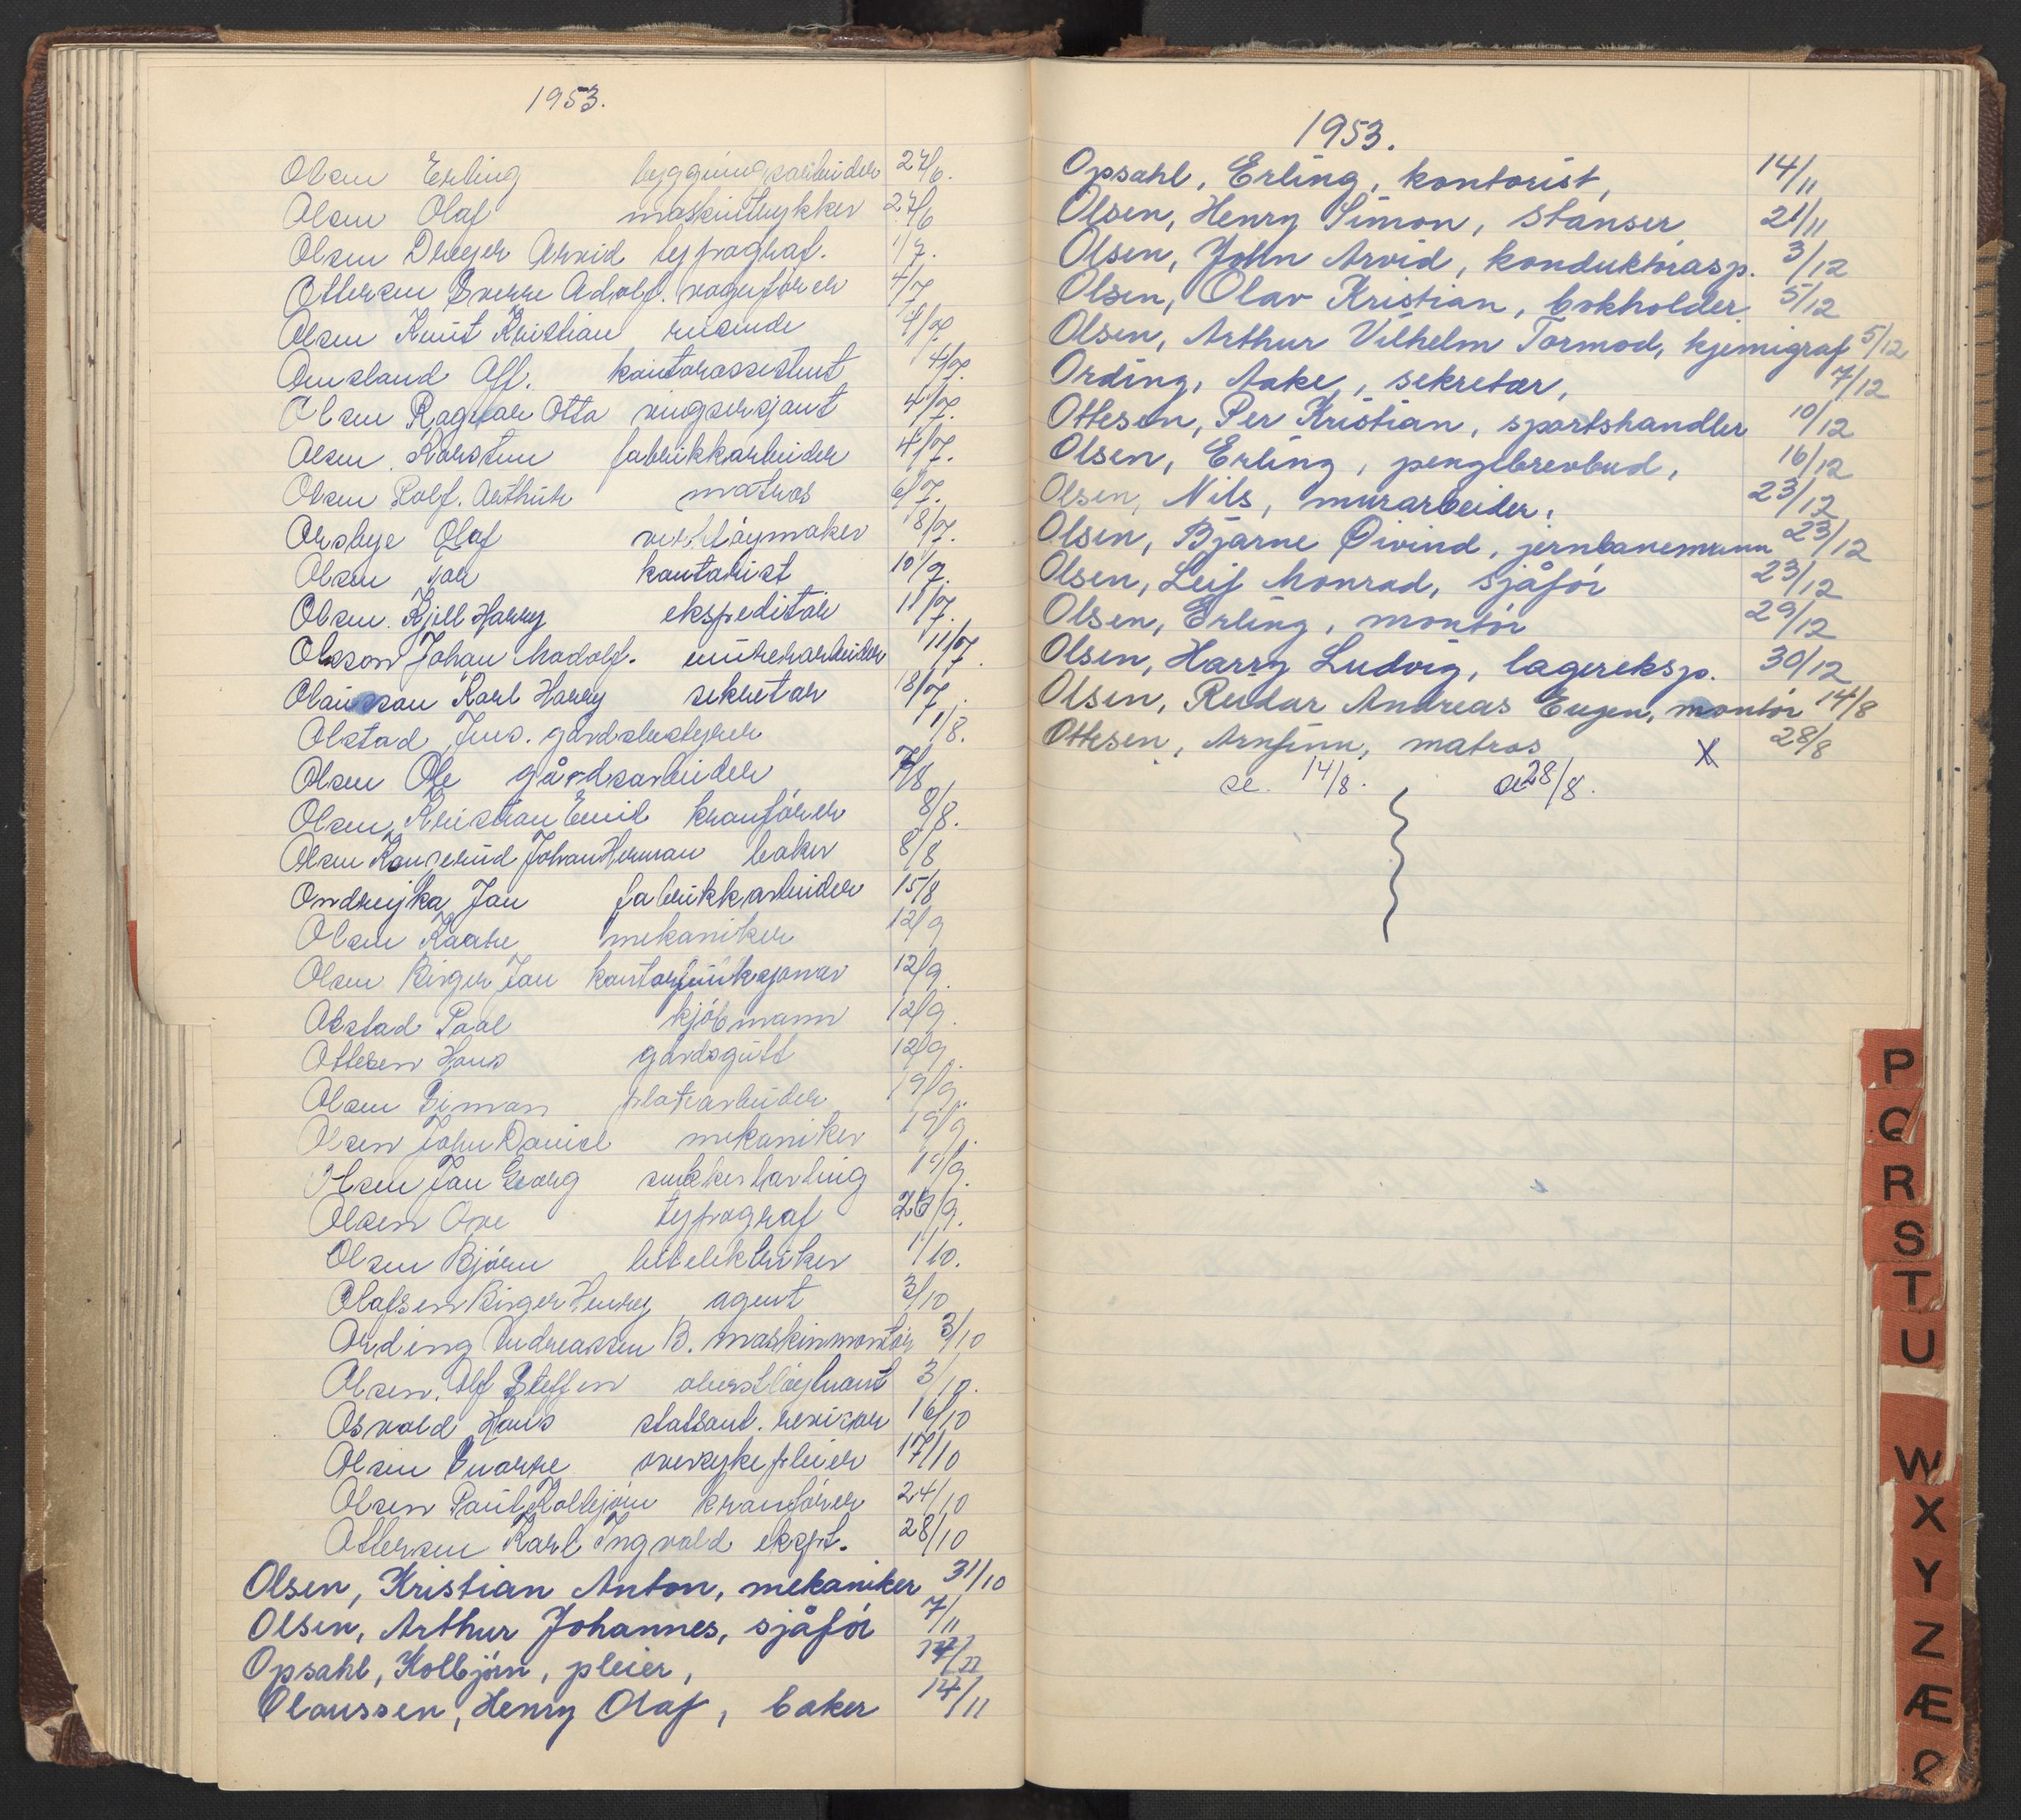 1953.
Olsen Erling bygningsarbeider 27/6.
Olsen Olaf maskintrykker 27/6
Olsen Dreyer Arvid typograf. 1/7.
Ottersen Sverre Adolf. vognfører 4/7
Olsen Knut Kristian reisende 4/7.
Omsland Alf. kontorassistent 4/7.
Olsen Ragnar Otto vingsersjant 4/7.
Olsen Karsten fabrikkarbeider 4/7.
Olsen Rolf. Arthur matros 6/7.
Olsbye Olaf verktøymaker 8/7.
Olsen Tor kontorist 10/7.
Olsen. Kjell Harry ekspeditør 11/7.
Olsson Johan Madolf. murerarbeider 11/7.
Olaussen Karl Harry sekretær 18/7.
Olstad Jens. gårdsbestyrer 1/8.
Olsen Ole gårdsarbeider 7/8
Olsen Kristian Emil kranfører 8/8.
Olsen Johan Herman baker 8/8
Ondrejka Jan fabrikkarbeider 15/8
Olsen Kaare mekaniker 12/9
Olsen Birger Jan kontorfunksjonær 12/9.
Olstad Paal kjøbmann 12/9.
Ottesen Hans gårdsgutt 12/9.
Olsen Simon platearbeider 19/9.
Olsen John Daniel mekaniker 19/9.
Olsen Jan Georg snekkerlærling 19/9.
Olsen Ove typograf 26/9.
Olsen Bjørn bilelektriker 1/10.
Olafsen Birger Henry agent 3/10
Ording Andreassen B. maskinmontør 3/10
Olsen. Alf Steffen oberstløytnant 3/10.
Osvald Hans statsaut. revisor 16/10
Olsen Snorre oversykepleier 17/10
Olsen Paul Kolbjørn kranfører 24/10
Ottersen Karl Ingvald ekspt. 28/10
Olsen, Kristian Anton, mekaniker 31/10
Olsen, Arthur Johannes, sjåfør 7/11
Opsahl, Kolbjørn, pleier, 14/11
Olaussen, Henry Olaf, baker 14/11
1953.
Opsahl, Erling, kontorist, 14/11
Olsen, Henry Simon, stanser 21/11
Olsen, John Arvid, konduktørasp. 3/12
Olsen, Olav Kristian, bokholder. 5/12
Olsen, Arthur Vilhelm Tormod, kjemigraf 5/12
Ording, Aake, sekretær, 7/12
Ottesen, Per Kristian, sportshandler 10/12
Olsen, Erling, pengebrevbud, 16/12
Olsen, Nils, murarbeider, 23/12
Olsen, Bjarne Øivind, jernbanemann 23/12
Olsen, Leif Monrad, sjåfør 23/12
Olsen, Erling, montør 29/12
Olsen, Harry Ludvig, lagereksp. 30/12
Olsen, Reidar Andreas Eugen, montør 14/8
Ottesen, Arnfinn, matros X 28/8
se. 14/8. se 28/8.
P
Q
R
S
T
U
W
X
Y
Z
Æ
Ø